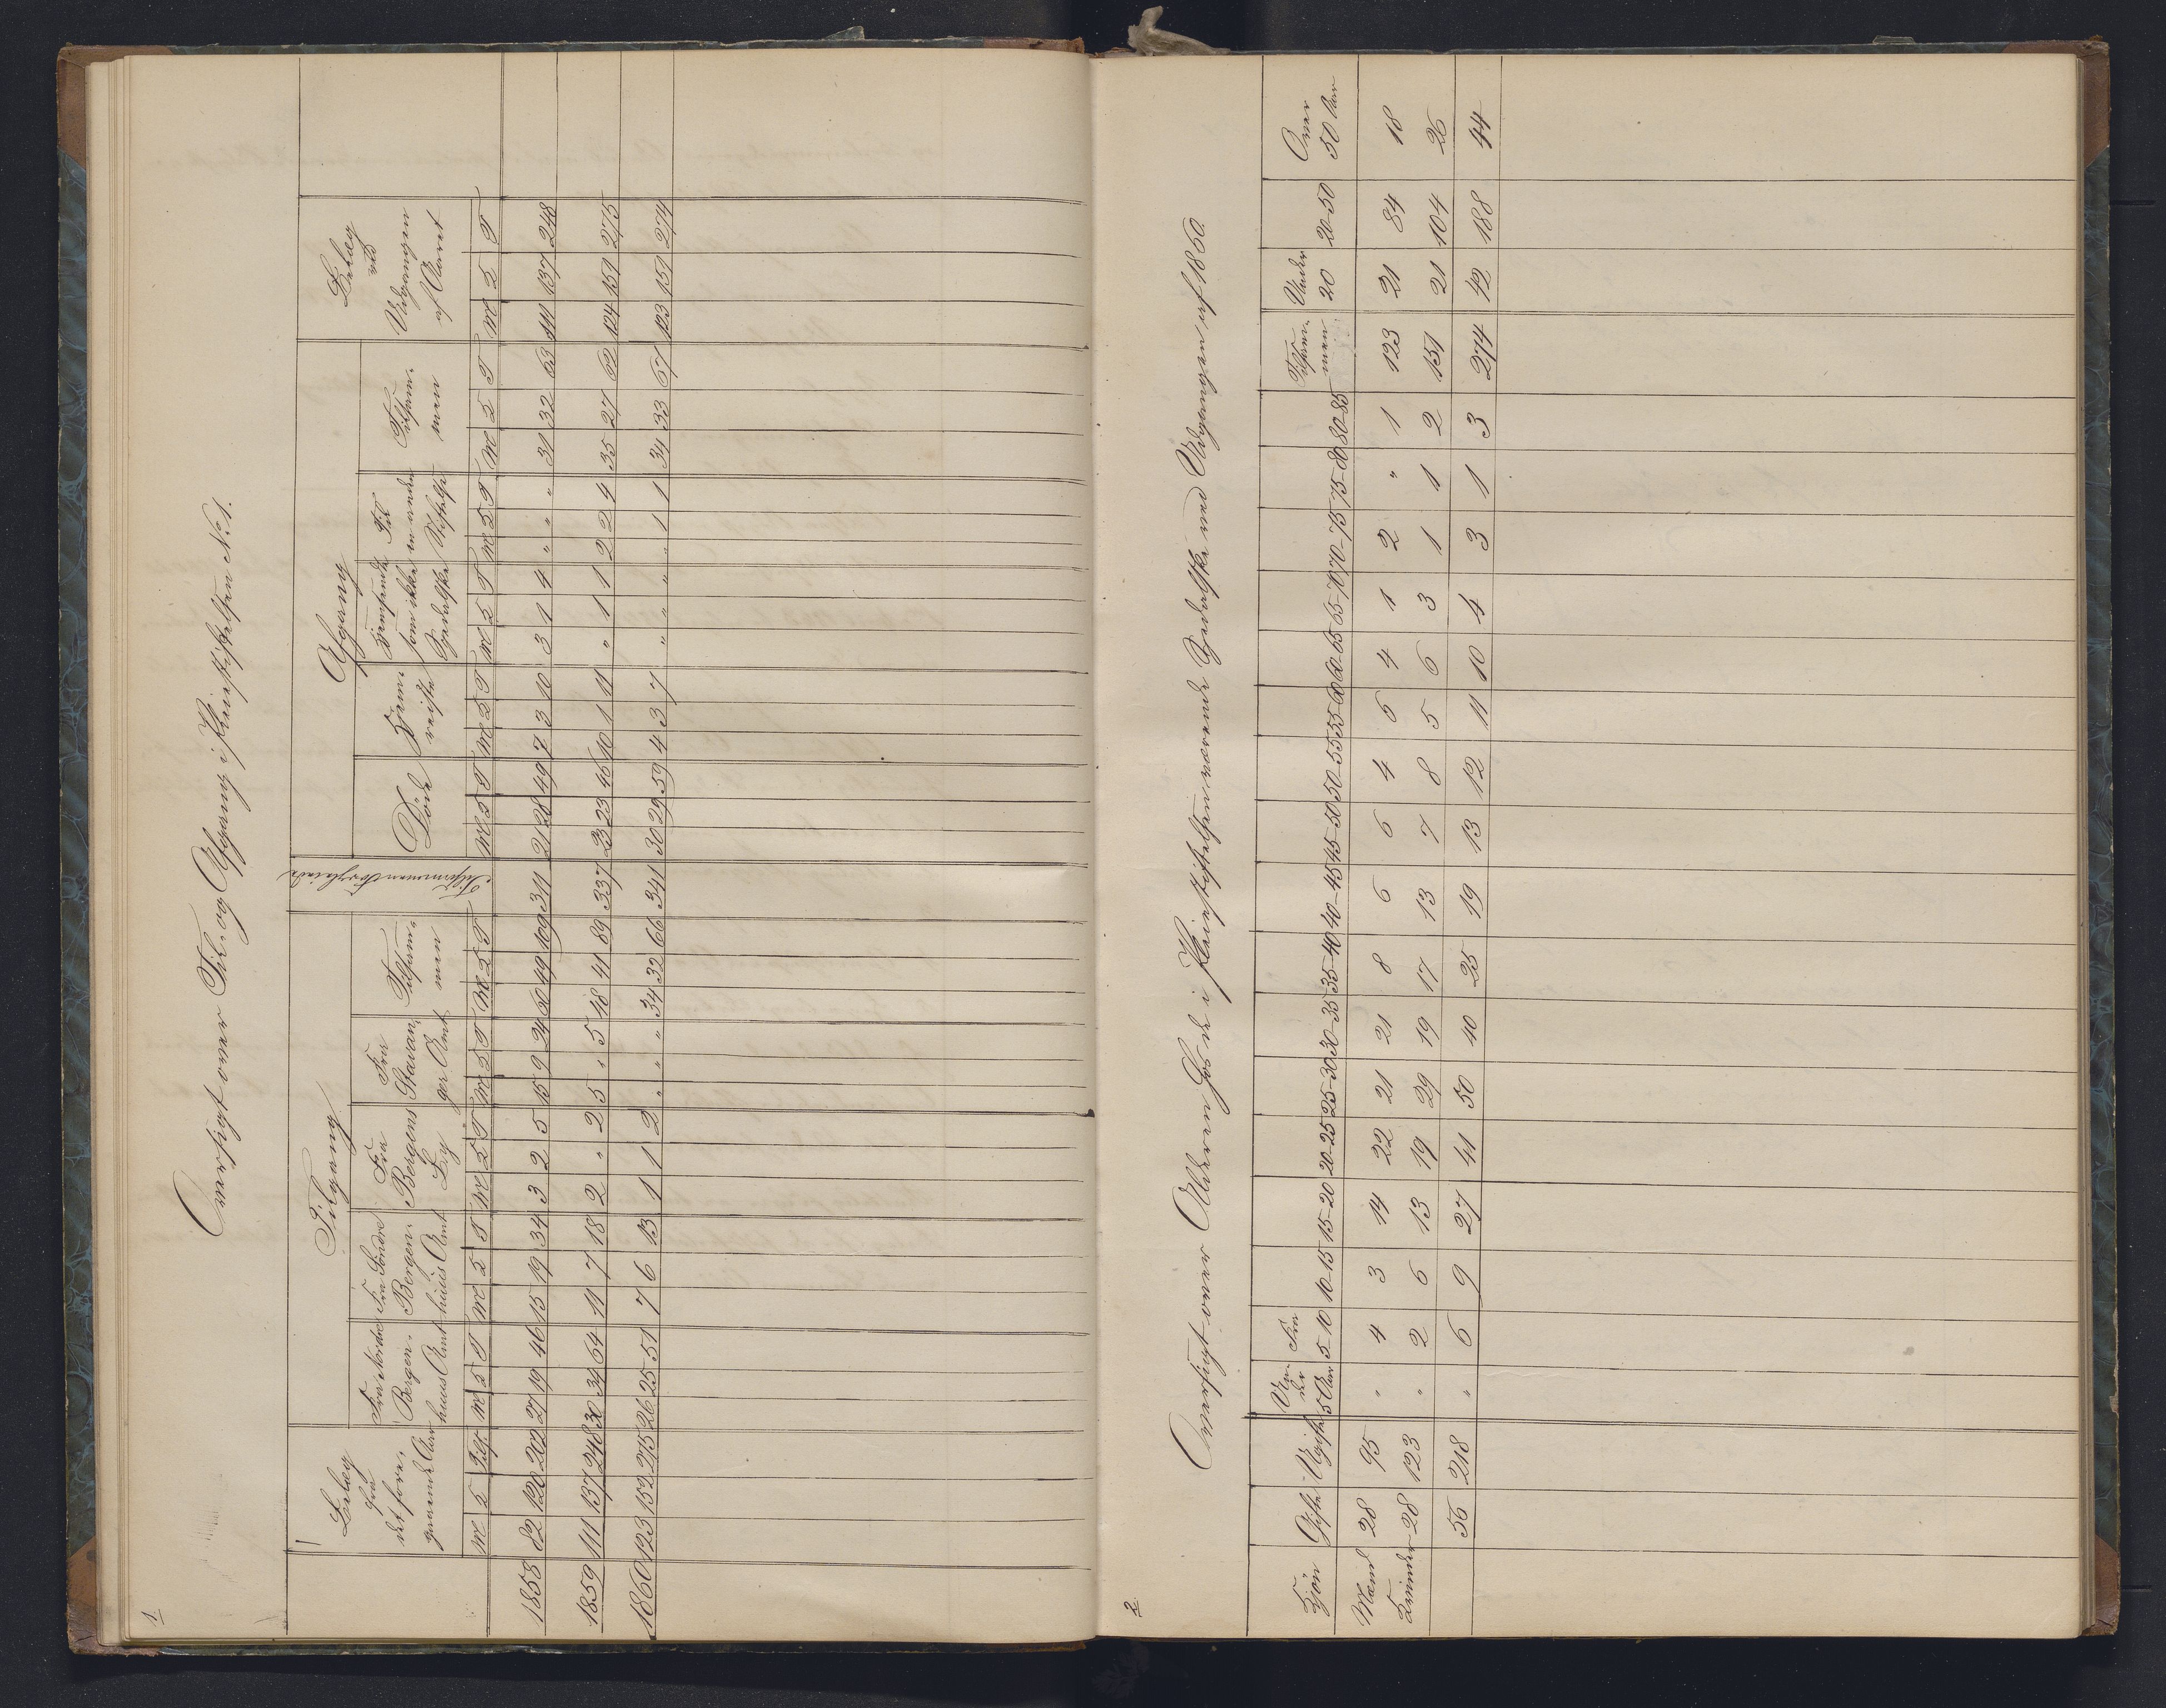 1.
Oversigt over Til- og Afgang i Pleiestiftelsen No 1.
Belæg fra det foregaaende Aar | Tilgang | Tilsammen Forpleiede | Afgang | Belæg ved Udgangen af Aaret
Fra Nordre Bergenhuus Amt | Fra Söndre Bergenhuus Amt | Fra Bergens By | Fra Stavanger Amt | Tilsammen | Döde | Hjemreiste | Hjemsendte som ikke Spedalske | Til en anden Stiftelse | Tilsammen
M | K | Tils. | M | K | T | M | K | T | M | K | T | M | K | T | M | K | T | M | K | T | M | K | T | M | K | T | M | K | T | M | K | T | M | K | T
1858 | 82 | 120 | 202 | 27 | 19 | 46 | 15 | 19 | 34 | 3 | 2 | 5 | 15 | 9 | 24 | 60 | 49 | 109 | 311 | 21 | 28 | 49 | 7 | 3 | 10 | 3 | 1 | 4 | " | " | " | 31 | 32 | 63 | 111 | 137 | 248
1859 | 111 | 137 | 248 | 30 | 34 | 64 | 11 | 7 | 18 | 2 | " | 2 | 5 | " | 5 | 48 | 41 | 89 | 337 | 23 | 23 | 46 | 10 | 1 | 11 | " | 1 | 1 | 2 | 2 | 4 | 35 | 27 | 62 | 124 | 151 | 275
1860 | 123 | 152 | 275 | 26 | 25 | 51 | 7 | 6 | 13 | 1 | 1 | 2 | " | " | " | 34 | 32 | 66 | 341 | 30 | 29 | 59 | 4 | 3 | 7 | " | " | " | " | 1 | 1 | 34 | 33 | 67 | 123 | 151 | 274
2
Oversigt over Alderen hos de i Pleiestiftelsen værende Spedalske ved Udgangen af 1860.
Kjön | Gifte | Ugifte | Under 5 Aar | Fra 5-10 | 10-15 | 15-20 | 20-25 | 25-30 | 30-35 | 35-40 | 40-45 | 45-50 | 50-55 | 55-60 | 60-65 | 65-70 | 70-75 | 75-80 | 80-85 | Tilsammen | Under 20 | 20-50 | Over 50 Aar
Mænd | 28 | 95 | " | 4 | 3 | 14 | 22 | 21 | 21 | 8 | 6 | 6 | 4 | 6 | 4 | 1 | 2 | " | 1 | 123 | 21 | 84 | 18
Kvinder | 28 | 123 | " | 2 | 6 | 13 | 19 | 29 | 19 | 17 | 13 | 7 | 8 | 5 | 6 | 3 | 1 | 1 | 2 | 151 | 21 | 104 | 26
56 | 218 | " | 6 | 9 | 27 | 41 | 50 | 40 | 25 | 19 | 13 | 12 | 11 | 10 | 4 | 3 | 1 | 3 | 274 | 42 | 188 | 44